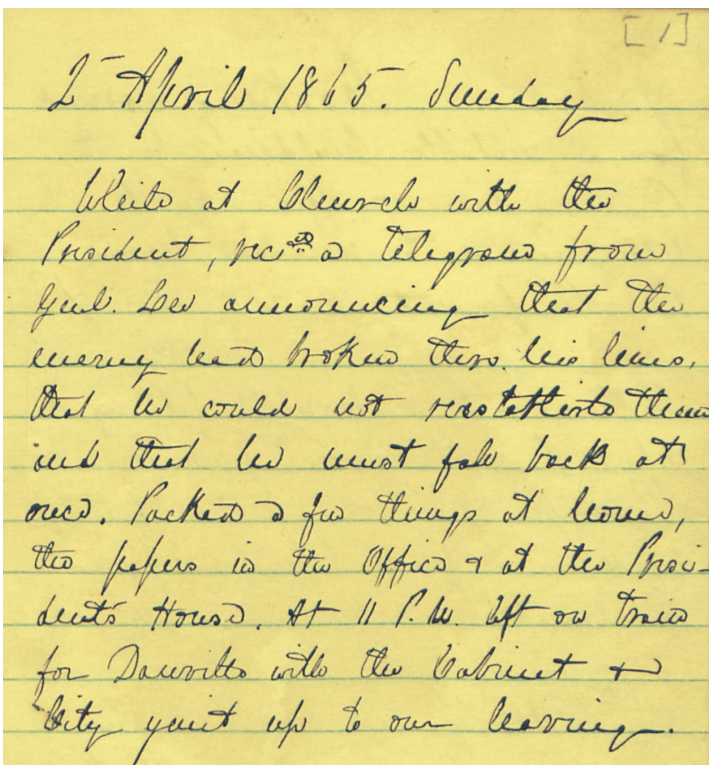 [1]
2 April 1865. Sunday
While at Church with the
President, recd a telegram from
Genl. Lee announcing that the
enemy had broken thro. his lines,
that he could not reestablish them
and that he must fall back at
once. Packed a few things at home,
the papers in the Office & at the Presi-
dent's House. At 11 P.M. left on train
for Danville with the Cabinet &
City quiet up to our leaving.